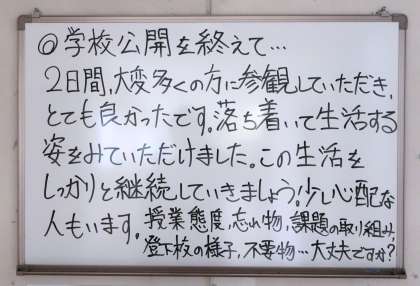 ◎学校公開を終えて…
2日間,大変多くの方に参観していただき,
とても良かったです。落ち着いて生活する
姿をみていただけました。この生活を
しっかりと継続していきましょう。少し心配な
人もいます。授業態度,忘れ物,課題の取り組み,
登下校の様子,不要物…大丈夫ですか?